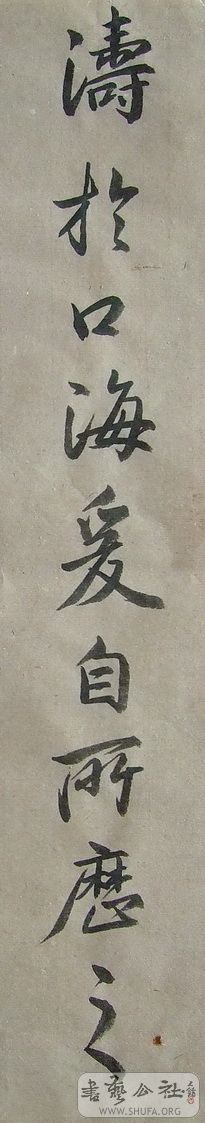 濤於口海爰自所歷之
書藝公社
WWW.SHUFA.ORG